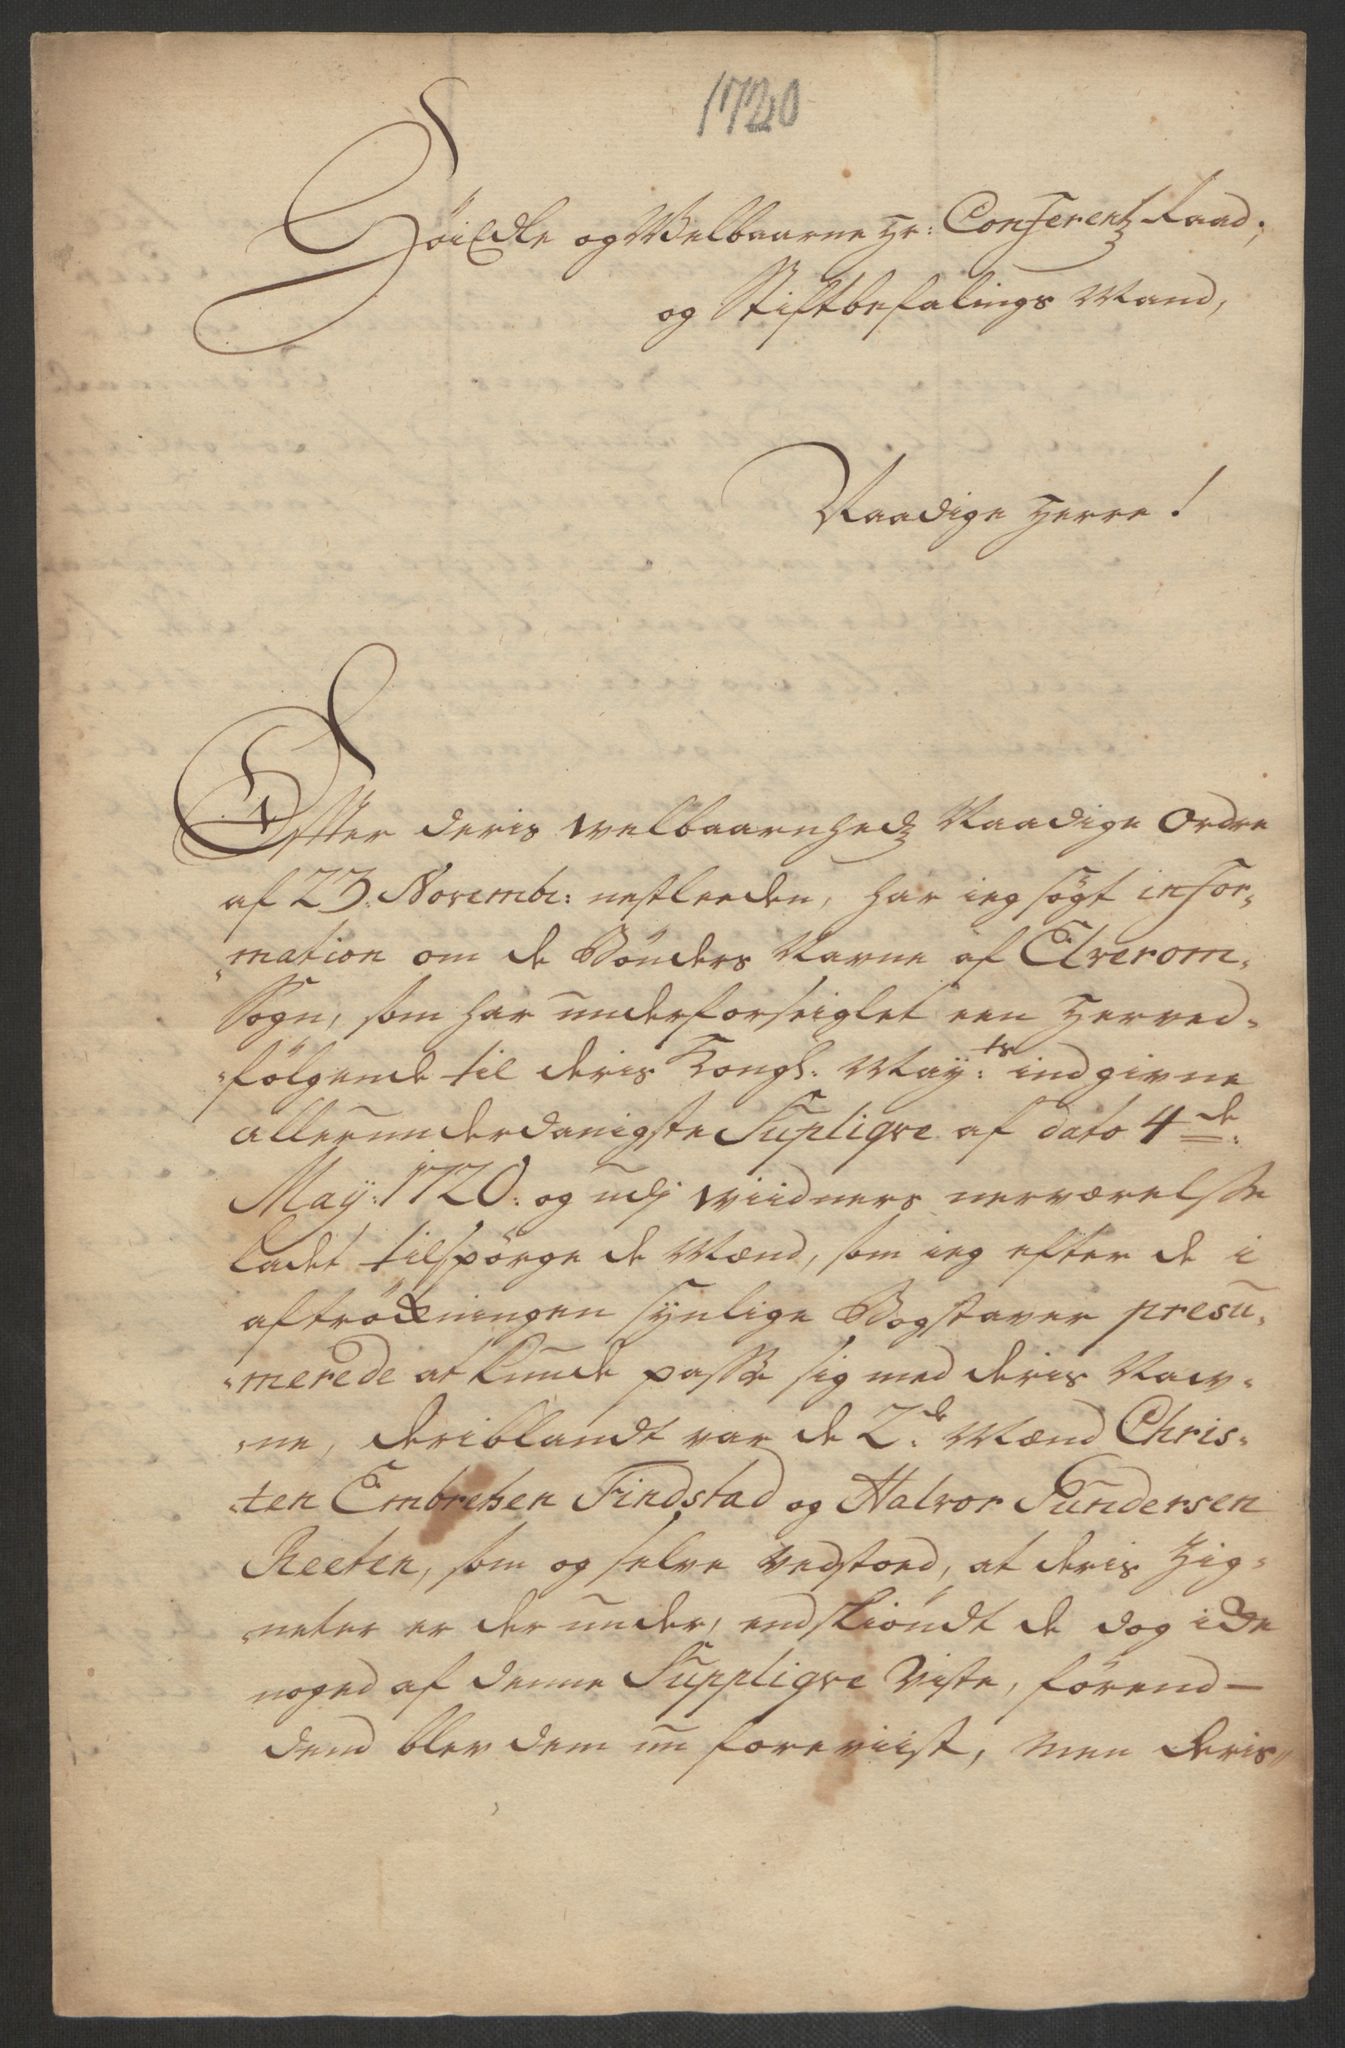 1720
HöiEdle og Welbaarne Hr: Conferentz Raad,
og Stiftbefalings Mand,
Naadige Herre!
Effter deris welbaarnhedz Naadige Ordre
af 23. Novembr: nestleeden, har ieg søgt infor-
mation om de Bönders Navne af Elverom-
Sogn, som har underforseiglet een Herved-
følgende til deris Kongl. May:ts indgivne
allerunderdanigste Supliqve af dato 4de
May: 1720: og udj Viidners nerværelsse
ladet tilspörge de Mænd, som ieg efter de i
aftröchningen synlige Bogstaver presu-
merede at kunde passe sig med deris Nav-
ne, deriblandt var de 2de Mænd Chris-
ten Embretsen Findstad og Halvor Gundersen
Reeten, som og selve vedstoed, at deris Zig-
neter er der under, endskiöndt de dog icke
noged af denne Suppliqve Viste, förend
dend blev dem nu foreviist, men deris